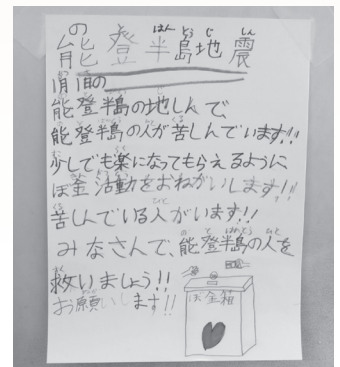 能登半島地震
1月1日の
能登半島の地しんで、
能登半島の人が苦しんでいます!!
少しでも楽になってもらえるように、
ぼ金活動をおねがいします!!
苦しんでいる人がいます!!
みなさんで、能登半島の人を
救いましょう!!
お願いします!!
ぼ金箱